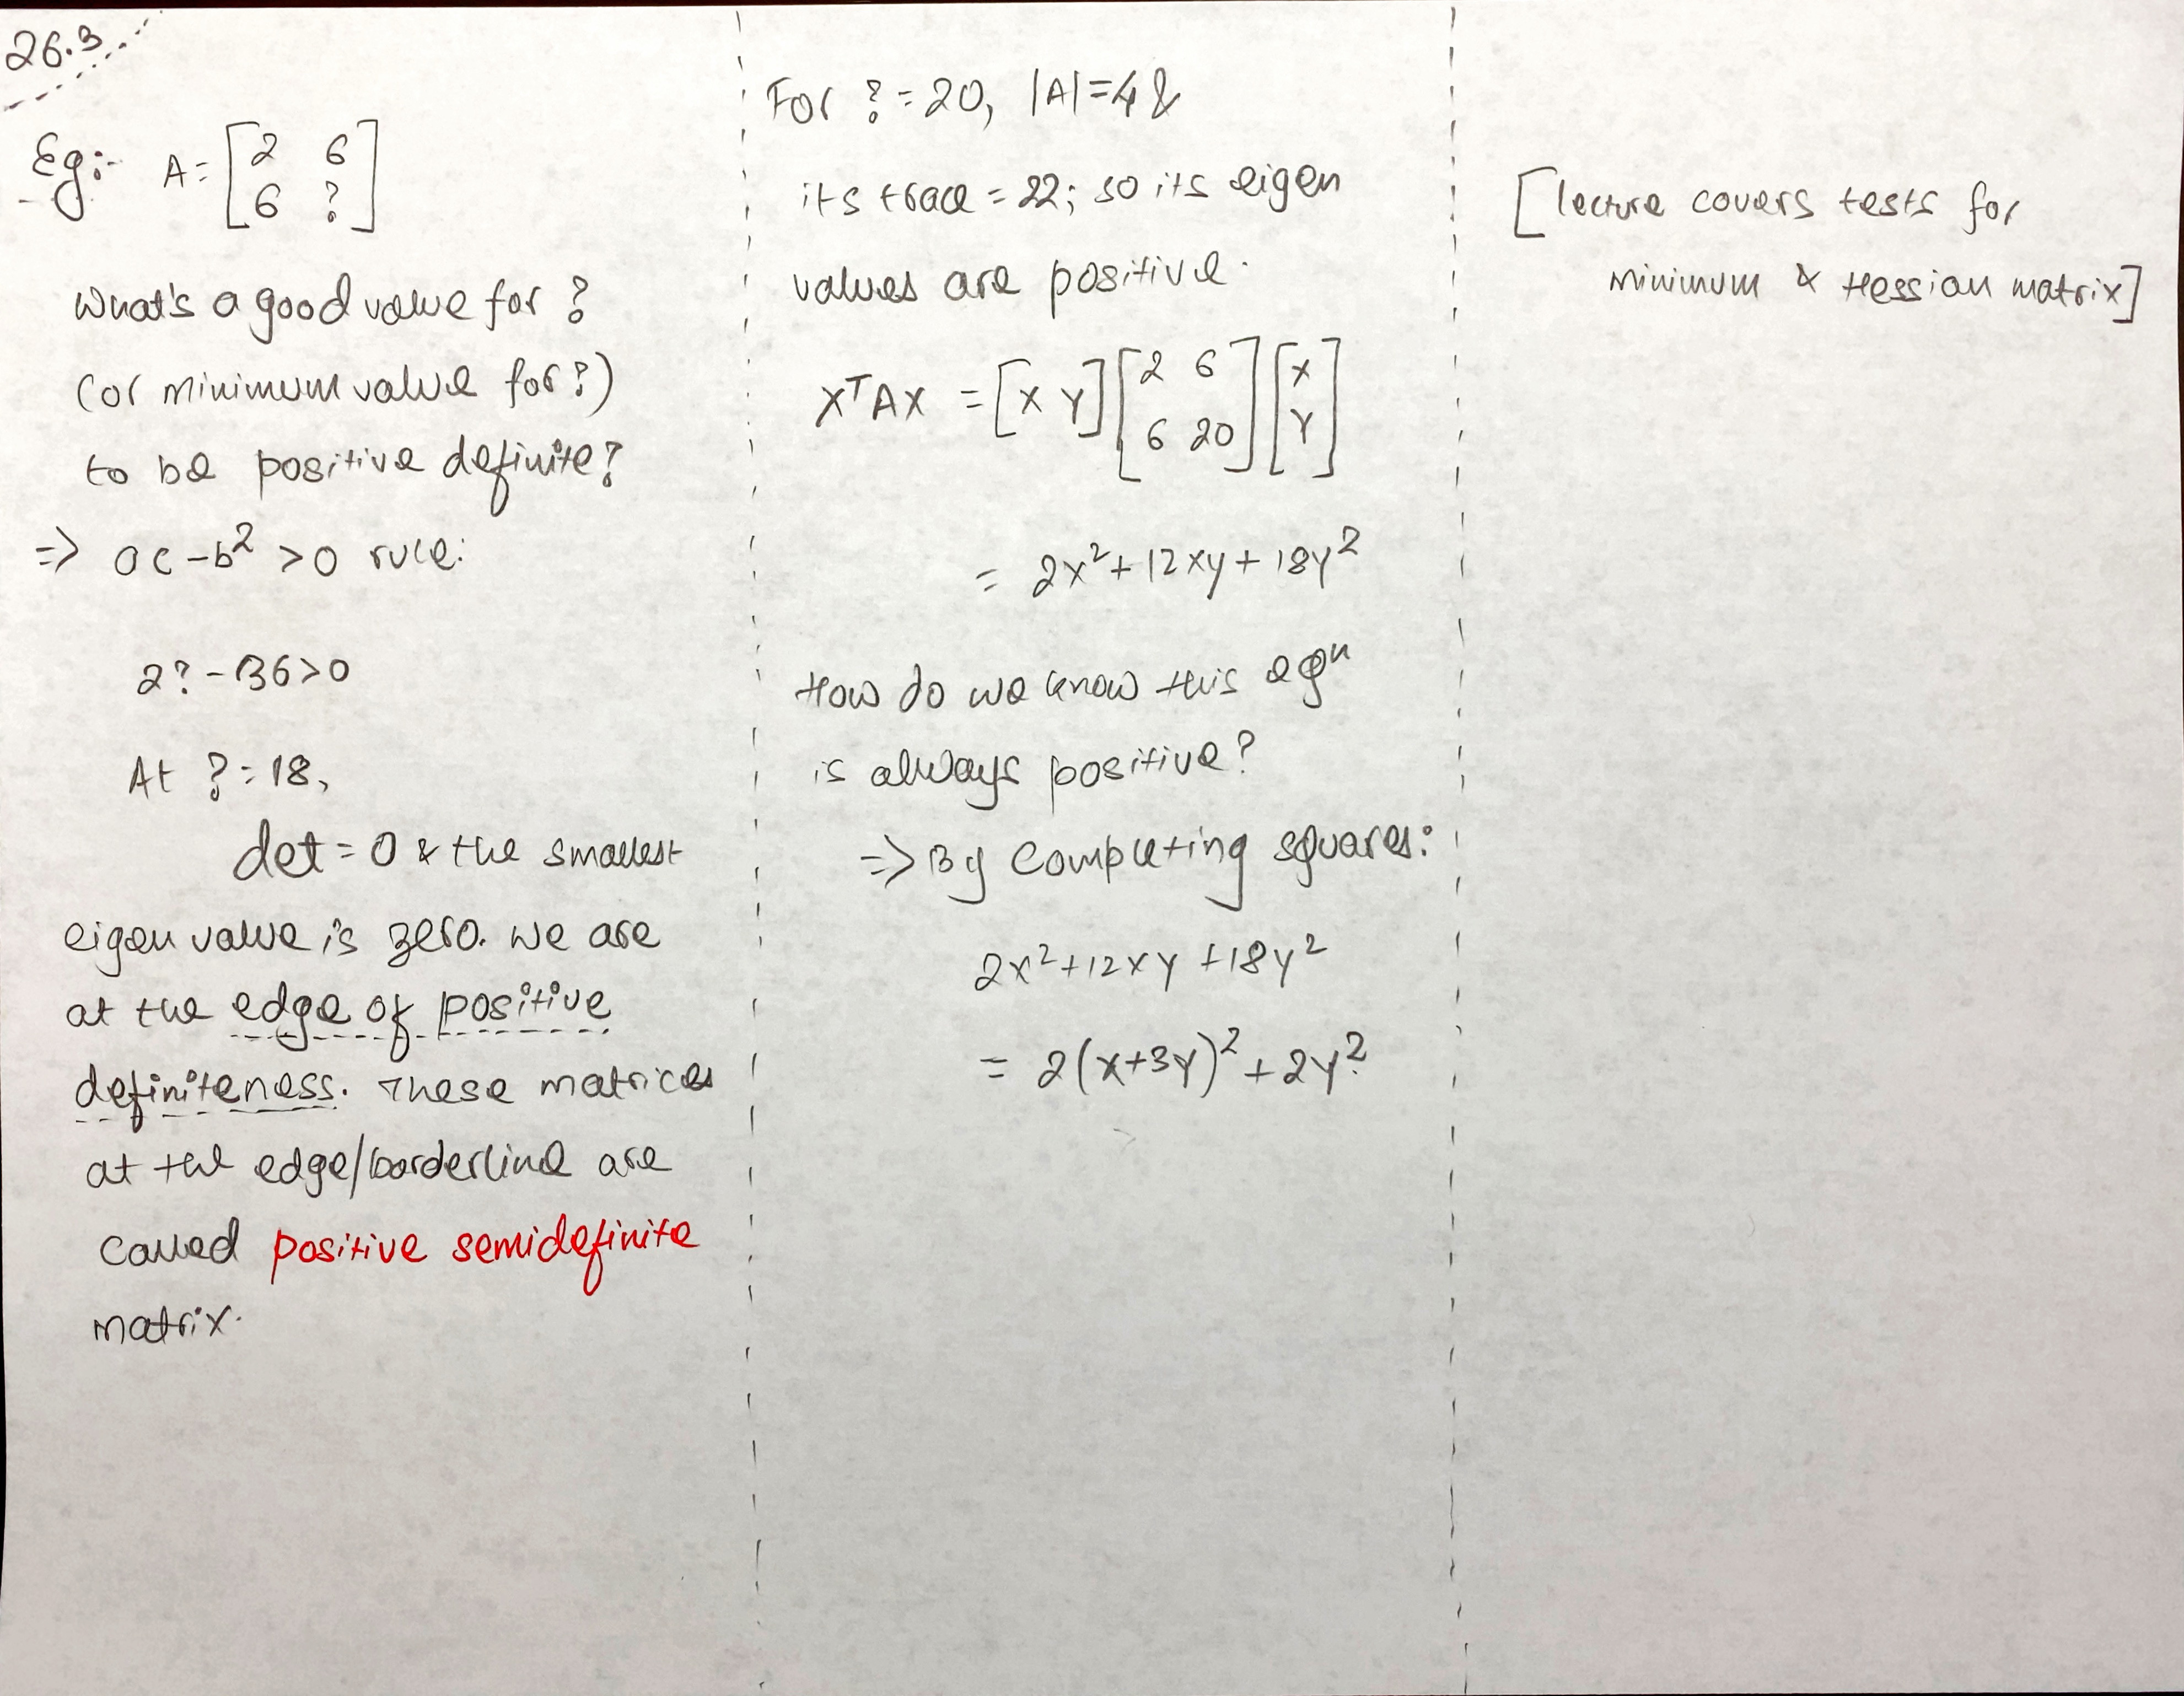 26.3
Eg:- A = [2 6
6 ?]
What's a good value for ?
(or minimum value for ?)
to be positive definite?
=> ac - b² > 0 rule:
2? - 36 > 0
At ? = 18,
det = 0 & the smallest
eigen value is zero. We are
at the edge of positive
definiteness. These matrices
at the edge/borderline are
called positive semidefinite
matrix.
For ? = 20, |A| = 4 &
its trace = 22; so its eigen
values are positive.
XᵀAX = [x y] [2 6
6 20] [x
y]
= 2x² + 12xy + 18y²
How do we know this eqⁿ
is always positive?
=> By computing squares:
2x² + 12xy + 18y²
= 2(x+3y)² + 2y²
[lecture covers tests for
minimum & Hessian matrix]